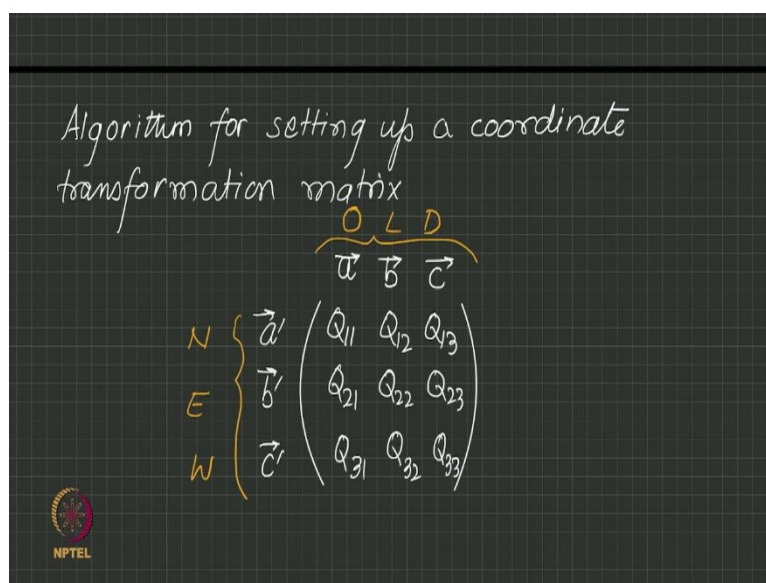 Algorithm for setting up a coordinate
transformation matrix
O L D
a⃗ b⃗ c⃗
N a⃗′ Q₁₁ Q₁₂ Q₁₃
E b⃗′ Q₂₁ Q₂₂ Q₂₃
W c⃗′ Q₃₁ Q₃₂ Q₃₃
NPTEL